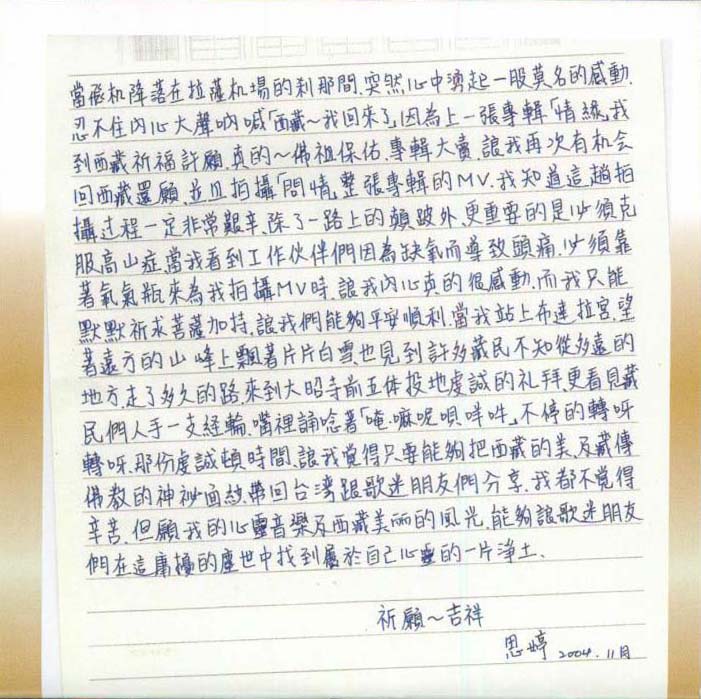 當飛机降落在拉薩机場的剎那間.突然,心中湧起一股莫名的感動.
忍不住內心大聲吶喊「西藏~我回來了」因為上一張專輯「情緣」我
到西藏祈福許願.真的~佛祖保佑.專輯大賣.讓我再次有机会
回西藏還願.並且拍攝「問情」整張專輯的MV.我知道這趟拍
攝过程一定非常艱辛.除了一路上的顛跛外.更重要的是必須克
服高山症.當我看到工作伙伴們因為缺氧而導致頭痛.必須靠
著氧氣瓶來為我拍攝MV時.讓我內心真的很感動.而我只能
默默祈求菩薩加持.讓我們能夠平安順利.當我站上布達拉宮.望
著遠方的山峰上飄著片片白雪.也見到許多藏民不知從多遠的
地方.走了多久的路.來到大昭寺前五体投地虔誠的礼拜.更看見藏
民們人手一支経輪.嘴裡誦唸著「唵·嘛呢唄咩吽」不停的轉呀
轉呀.那份虔誠頓時間.讓我覺得只要能夠把西藏的美及藏傳
佛教的神祕面紗.帶回台湾跟歌迷朋友們分享.我都不覺得
辛苦.但願我的心靈音樂及西藏美丽的風光.能夠讓歌迷朋友
們在這庸擾的塵世中找到屬於自己心靈的一片淨土.
祈願~吉祥
思婷 2004.11月